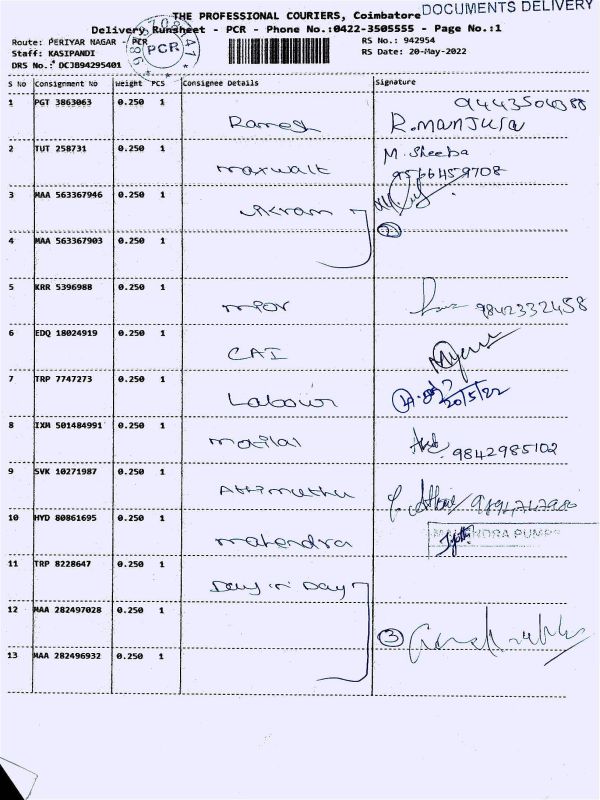 DOCUMENTS DELIVERY
THE PROFESSIONAL COURIERS, Coimbatore
Delivery Runsheet - PCR - Phone No.:0422-3505555 - Page No.:1
Route: PERIYAR NAGAR - PCR
RS No.: 942954
Staff: KASIPANDI
RS Date: 20-May-2022
DRS No.: DCJB94295401
PCR
S No Consignment No Weight PCS Consignee Details Signature
1 PGT 3863063 0.250 1 Ramesh R.Manjula
2 TUT 258731 0.250 1 maxwalt M. Sheeba
9566459708
3 MAA 563367946 0.250 1 vikram
4 MAA 563367903 0.250 1 2
5 KRR 5396988 0.250 1 9842332458
6 EDQ 18024919 0.250 1 CAI
7 TRP 7747273 0.250 1 Labour 20/5/22
8 IXM 501484991 0.250 1 9842985102
9 SVK 10271987 0.250 1
10 HYD 80861695 0.250 1 mahendra MAHENDRA PUMPS
11 TRP 8228647 0.250 1 Day n Day
12 MAA 282497028 0.250 1 3
13 MAA 282496932 0.250 1